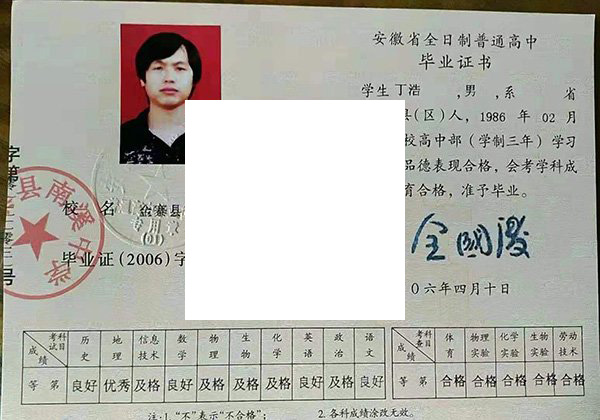 安徽省全日制普通高中
毕业证书
学生丁浩 ,男,系 省
县(区)人,1986 年 02 月
校高中部(学制三年)学习
品德表现合格,会考学科成
育合格,准予毕业。
校 名 金寨县
毕业证(2006)字
〇六年四月十日
县南溪中学
考试科目 历史 地理 信息技术 数学 物理 生物 化学 英语 政治 语文
成绩
等第 良好 优秀 及格 良好 及格 及格 及格 良好 良好 良好
考查科目 体育 物理实验 化学实验 生物实验 劳动技术
成绩
等第 合格 合格 合格 合格 合格
注:1."不"表示"不合格"; 2.各科成绩涂改无效。